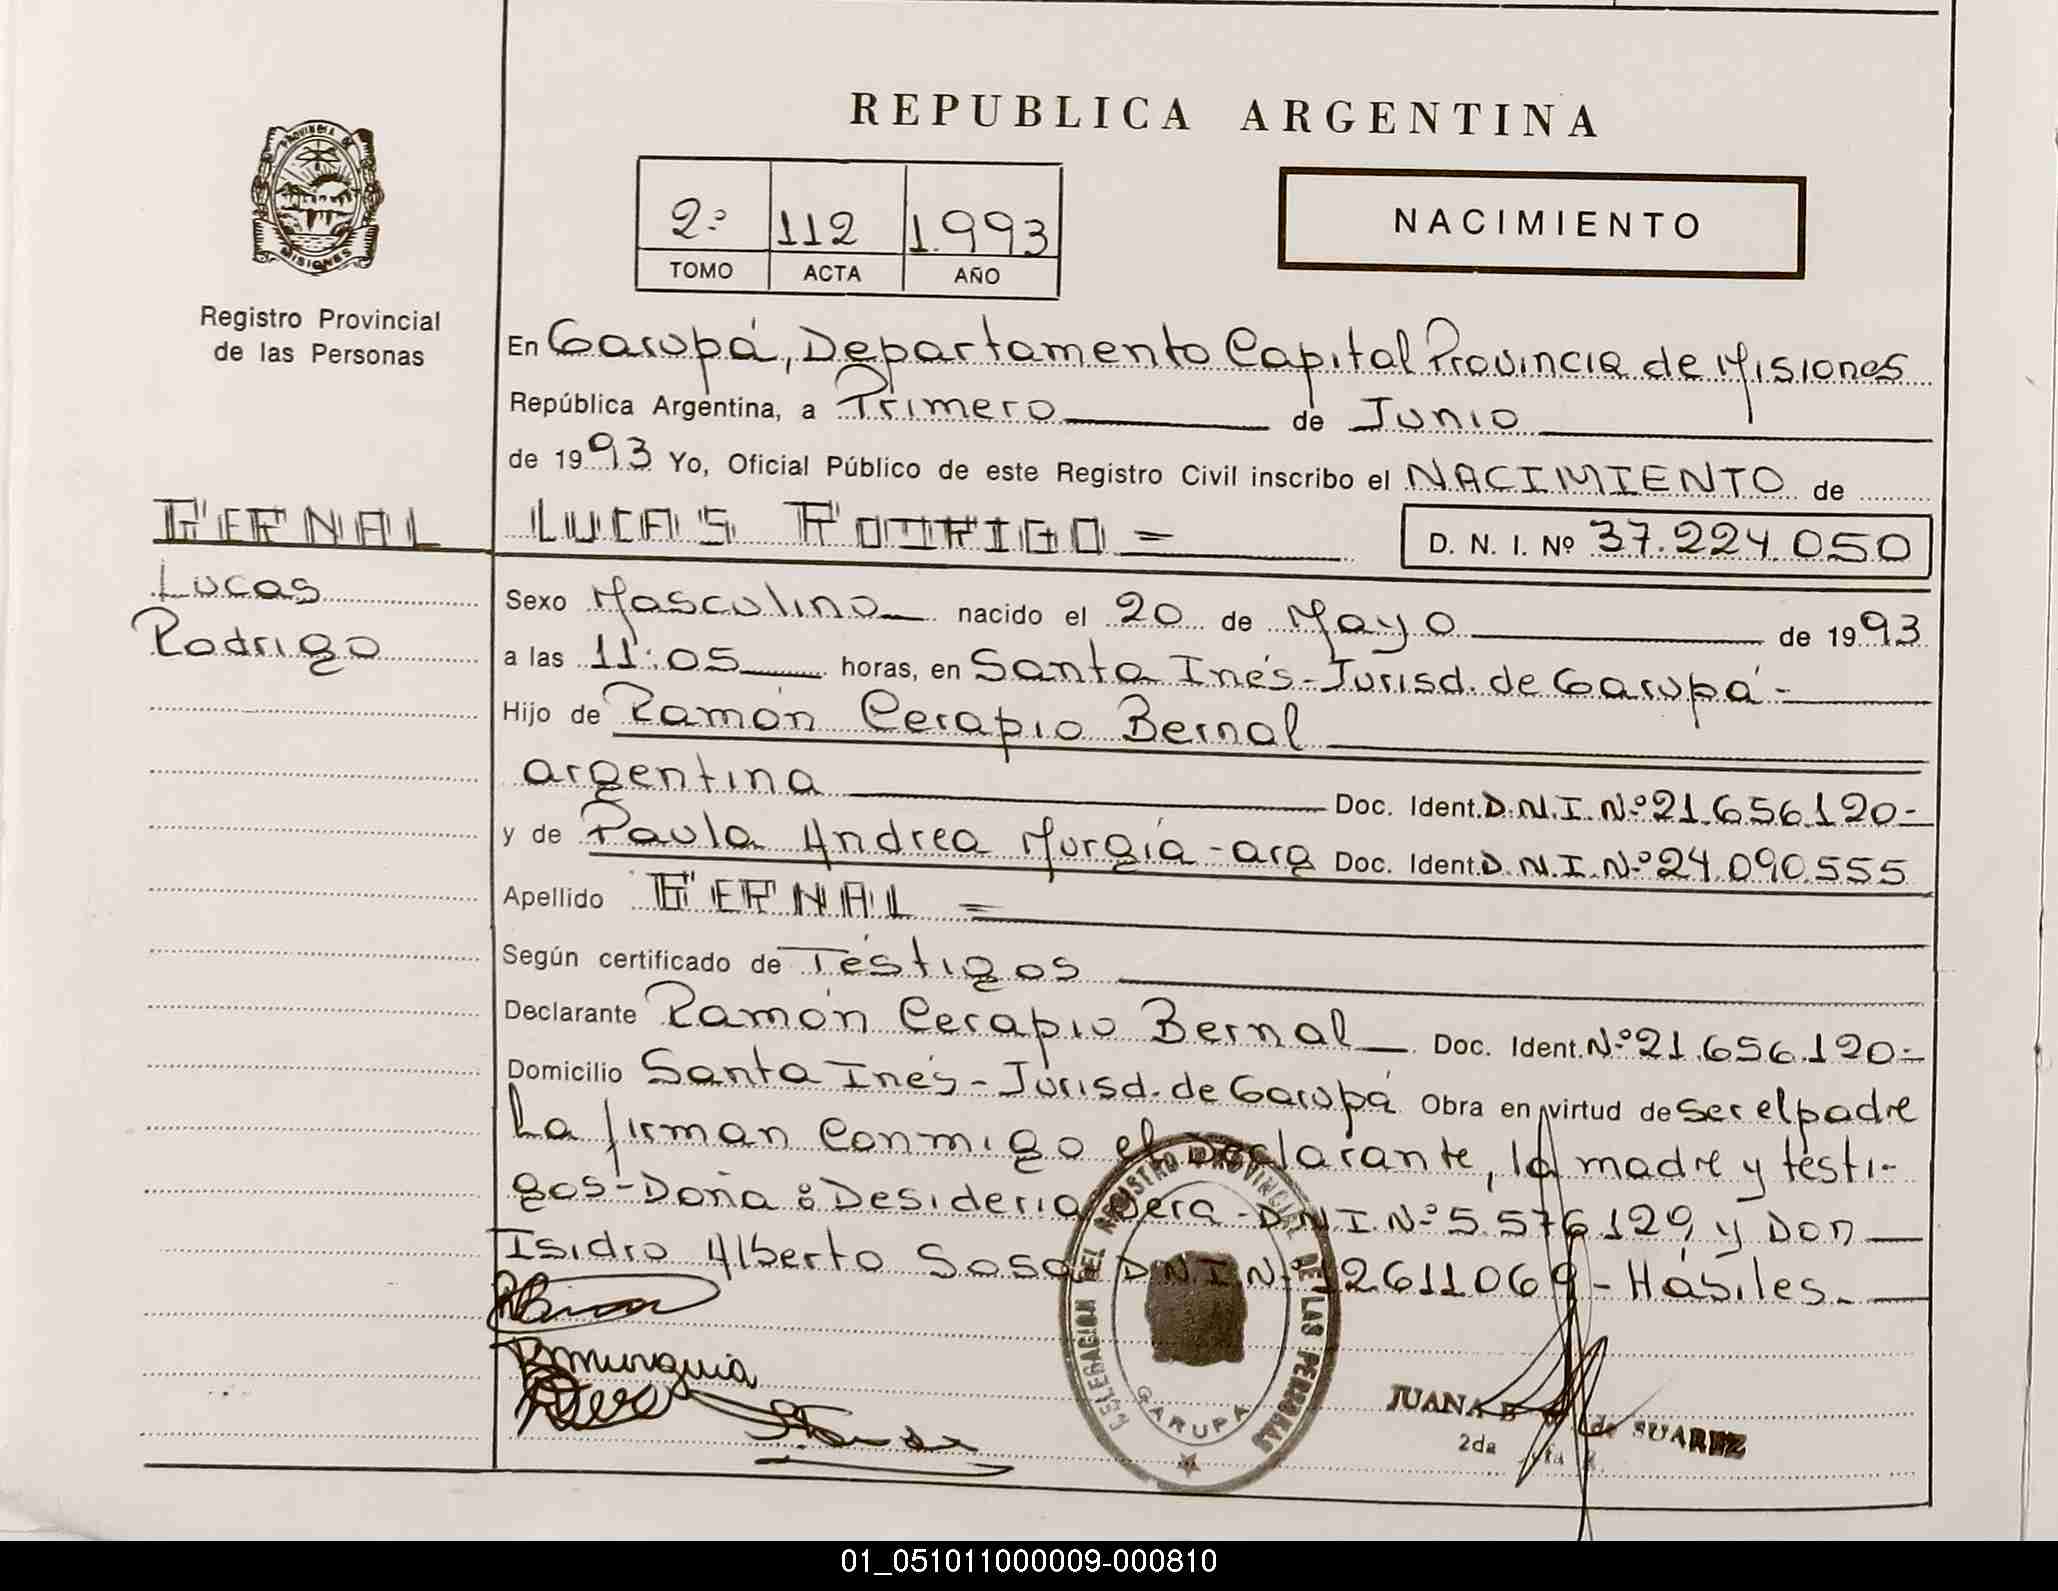 REPUBLICA ARGENTINA
PROVINCIA DE
MISIONES
Registro Provincial
de las Personas
2º 112 1.993
TOMO ACTA AÑO
NACIMIENTO
En Garupá, Departamento Capital Provincia de Misiones
República Argentina, a Primero de Junio
de 1993 Yo, Oficial Público de este Registro Civil inscribo el NACIMIENTO de
BERNAL
LUCAS RODRIGO =
D. N. I. Nº 37.224.050
Lucas
Rodrigo
Sexo Masculino nacido el 20 de Mayo de 1993
a las 11:05 horas, en Santa Inés-Jurisd. de Garupá-
Hijo de Ramón Cerapio Bernal
argentina Doc. Ident. D.N.I. Nº 21.656.120-
y de Paula Andrea Murgía-arg Doc. Ident. D.N.I. Nº 24.090.555
Apellido BERNAL =
Según certificado de Téstigos
Declarante Ramón Cerapio Bernal Doc. Ident. Nº 21.656.120-
Domicilio Santa Inés-Jurisd. de Garupá Obra en virtud de ser el padre
La firman conmigo el declarante, la madre y tésti-
gos-Doña: Desideria Vera-D.N.I. Nº 5.576.129 y Don
Isidro Alberto Sosa D.N.I. Nº 12611069-Hábiles.-
DELEGACION DEL REGISTRO PROVINCIAL DE LAS PERSONAS
GARUPA
JUANA B de SUAREZ
2da
01_051011000009-000810